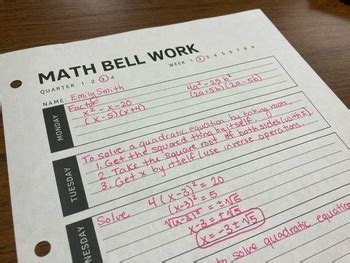 MATH BELL WORK
QUARTER 1 2 3 4
WEEK 1 2 3 4 5 6 7 8 9
NAME: Emily Smith
MONDAY
Factor!
x² - x - 20
(x-5)(x+4)
4a² - 25b²
(2a+5b)(2a-5b)
TUESDAY
To solve a quadratic equation by taking roots,
1. Get the squared thing by itself.
2. Take the square root of both sides (with ±).
3. Get x by itself (use inverse operations).
WEDNESDAY
Solve.
4(x-3)² = 20
(x-3)² = 5
√(x-3)² = ±√5
x-3 = ±√5
x = -3±√5
to solve quadratic equation